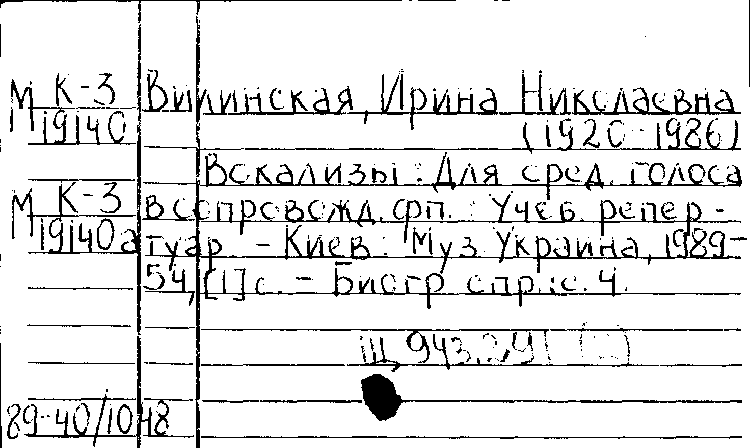 М К-3 Вилинская, Ирина Николаевна
19140 (1920-1986)
Вокализы : Для сред. голоса
М К-3 в сопровожд. фп. : Учеб. репер-
19140а туар. - Киев : Муз. Украина, 1989-
54, [1] с. - Биогр. спр.: с. 4.
Щ 943.291
89-40/1048